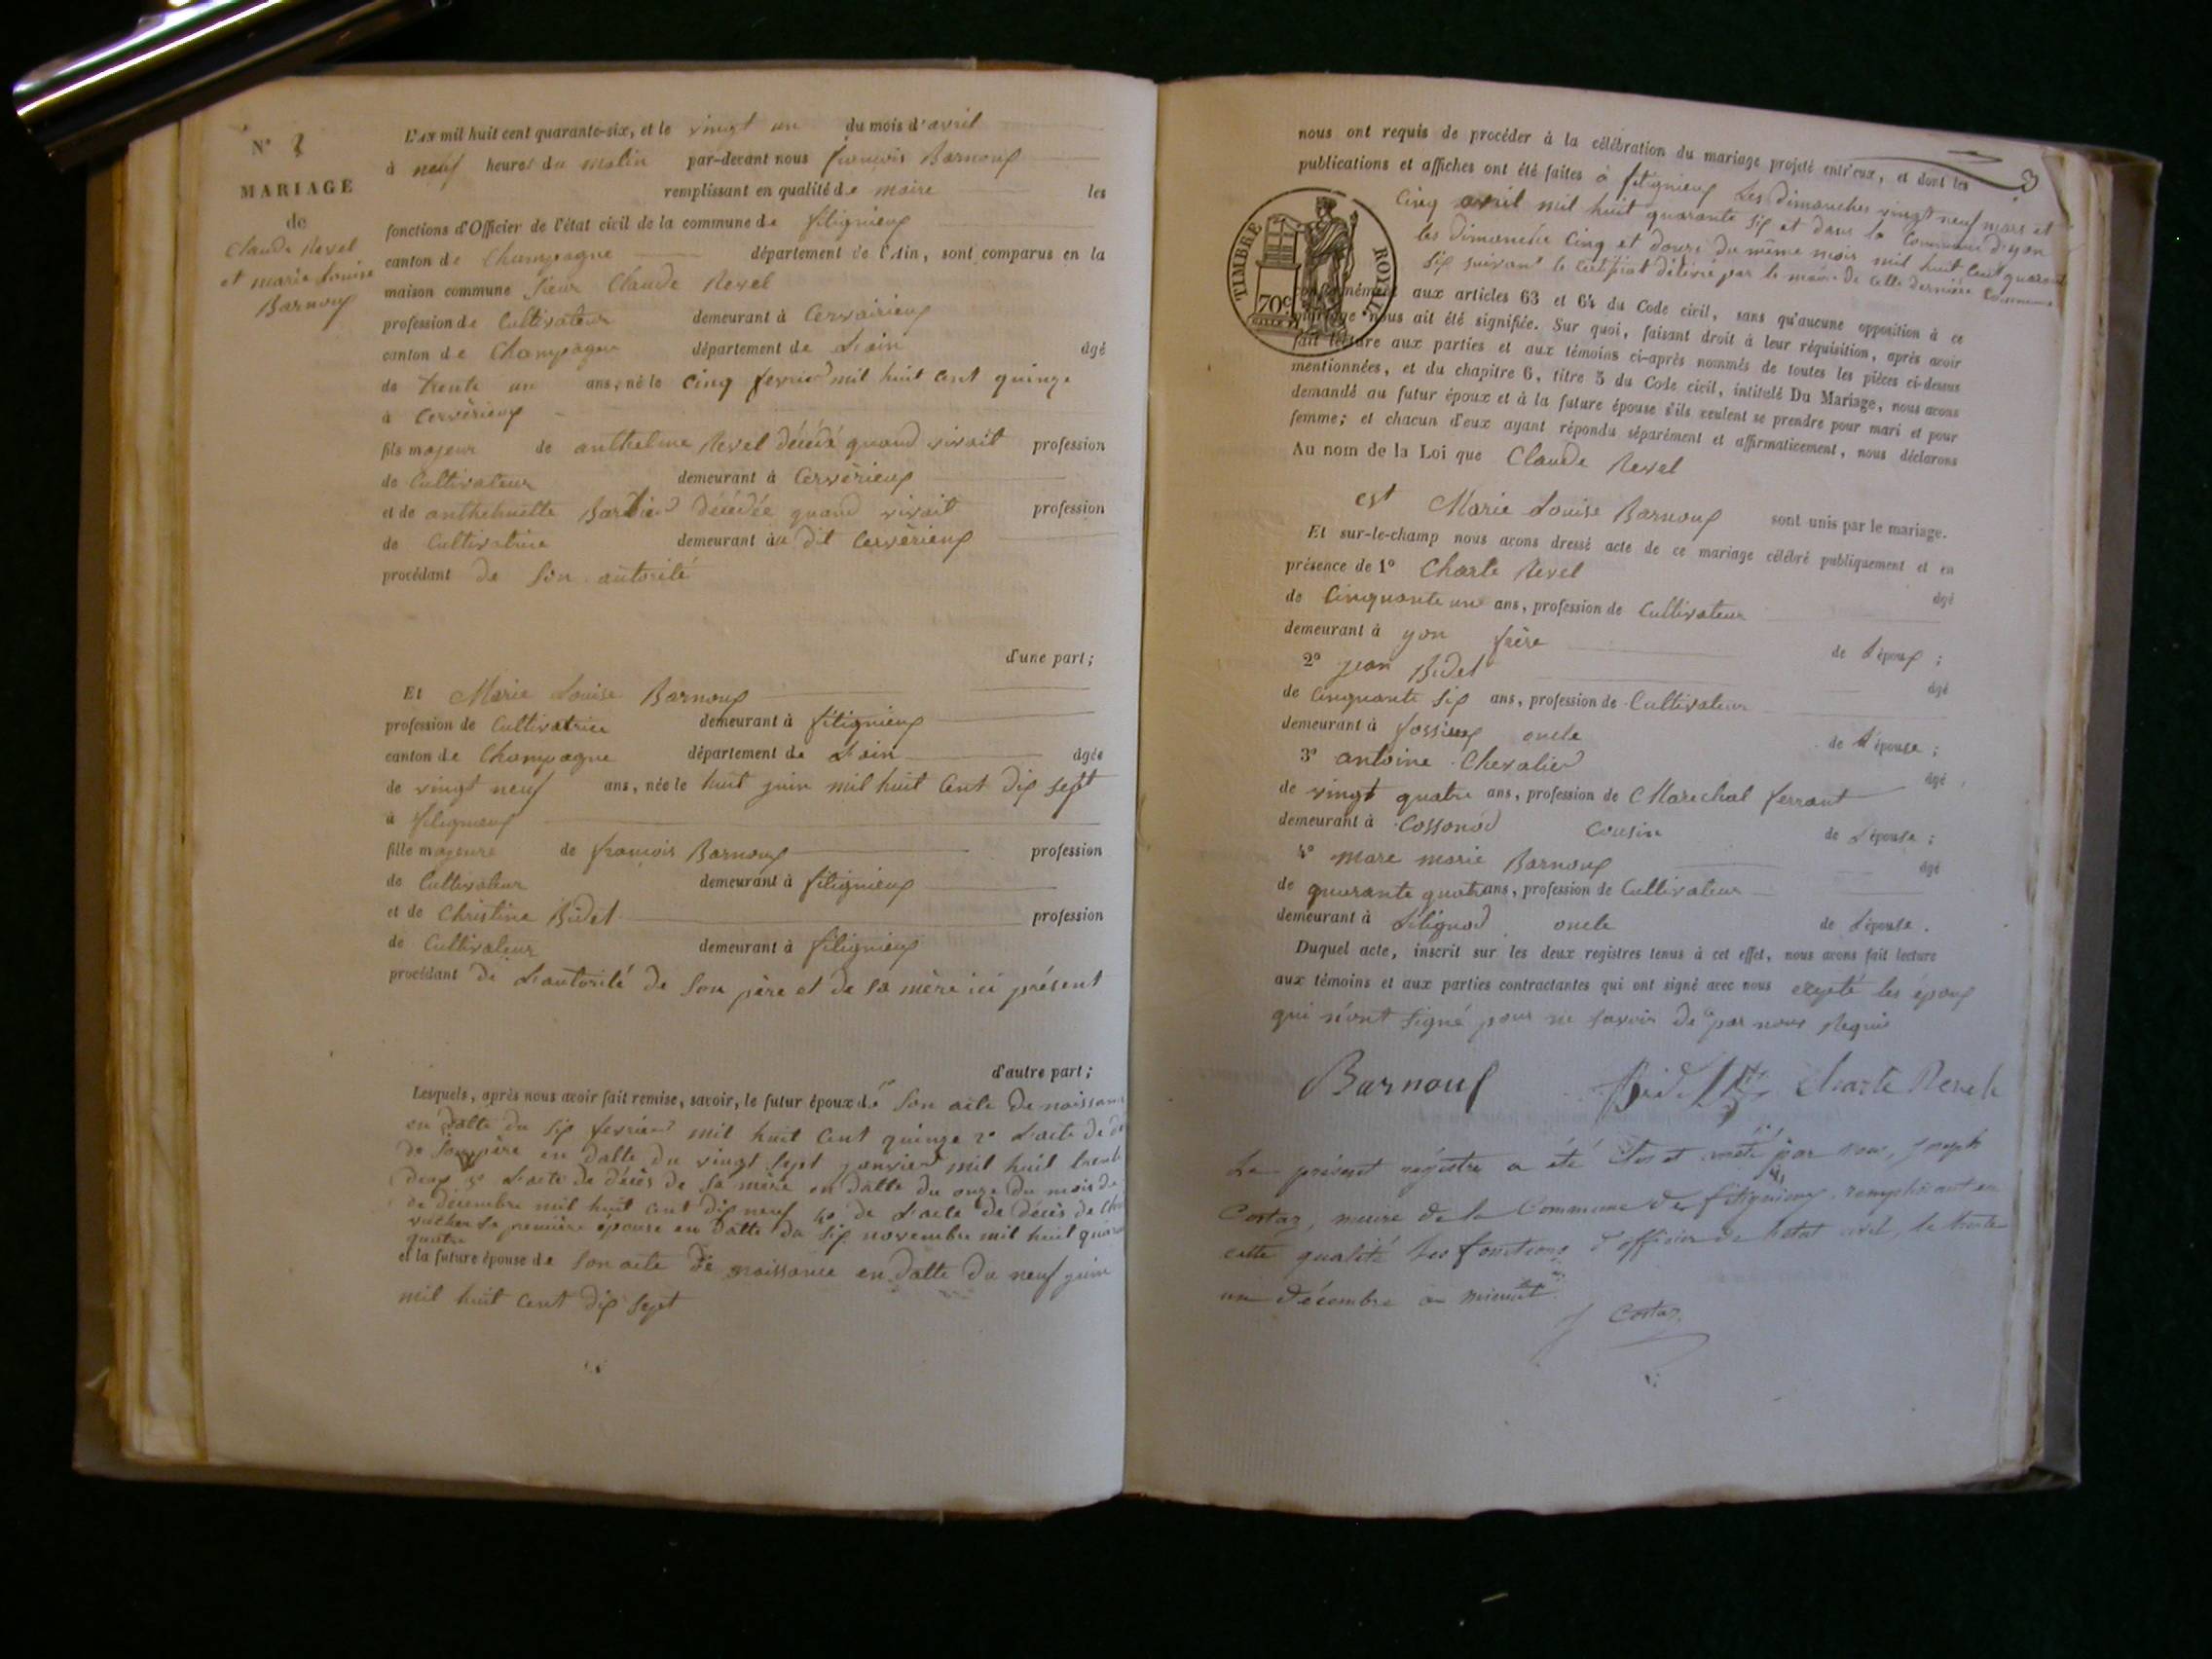 N° 2
MARIAGE
de
Claude Revel
et marie Louise
Barnoux
L'AN mil huit cent quarante-six, et le vingt un du mois d'avril
à neuf heures du matin par-devant nous françois Barnoux
remplissant en qualité de maire les
fonctions d'Officier de l'état civil de la commune de fitignieux
canton de Champagne département de l'Ain, sont comparus en la
maison commune Sieur Claude Revel
profession de Cultivateur demeurant à Cervairieux
canton de Champagne département de L'ain âgé
de trente un ans, né le Cinq fevrier mil huit cent quinze
à Cervérieux
fils majeur de anthelme Revel décédé quand vivait profession
de Cultivateur demeurant à Cervèrieux
et de anthelmette décédée quand vivait profession
de Cultivatrice demeurant au dit Cervèrieux
procédant de son autorité
d'une part;
Et Marie Louise Barnoux
profession de Cultivatrice demeurant à fitignieux
canton de Champagne département de L'ain âgée
de vingt neuf ans, née le huit juin mil huit cent dix sept
à fitignieux
fille majeure de francois Barnoux profession
de Cultivateur demeurant à fitignieux
et de Christine Bidet profession
de Cultivateur demeurant à fitignieux
procédant de L'autorité de son père et de sa mère ici présent
d'autre part;
Lesquels, après nous avoir fait remise, savoir, le futur époux de son acte de naissance
en datte du six fevrier mil huit cent quinze 2° L'acte de
de son père en datte du vingt sept janvier mil huit trente
deux 3° L'acte de décès de sa mère en datte du onze du mois de
de décembre mil huit cent dix neuf 4° de L'acte de décès de
vucher sa première épouse en datte du six novembre mil huit
quatre
et la future épouse de son acte de naissance en datte du neuf juin
mil huit cent dix sept
3
nous ont requis de procéder à la célébration du mariage projeté entr'eux, et dont les
publications et affiches ont été faites à fitignieux Les dimanches vingt neuf mars et
Cinq avril mil huit quarante six et dans la Commune d'yon
les dimanches Cinq et douze du même mois mil huit cent quarante
six suivant le Certificat délivré par le maire de cette dernière Commune
TIMBRE ROYAL
70c
conformément aux articles 63 et 64 du Code civil, sans qu'aucune opposition à ce
mariage nous ait été signifiée. Sur quoi, faisant droit à leur réquisition, après avoir
fait lecture aux parties et aux témoins ci-après nommés de toutes les pièces ci-dessus
mentionnées, et du chapitre 6, titre 5 du Code civil, intitulé Du Mariage, nous avons
demandé au futur époux et à la future épouse s'ils veulent se prendre pour mari et pour
femme; et chacun d'eux ayant répondu séparément et affirmativement, nous déclarons
Au nom de la Loi que Claude Revel
est Marie Louise Barnoux sont unis par le mariage.
Et sur-le-champ nous avons dressé acte de ce mariage célébré publiquement et en
présence de 1° Charle Revel âgé
de Cinquante un ans, profession de Cultivateur
demeurant à yon frère de L'époux ;
2° jean Bidet âgé
de Cinquante six ans, profession de Cultivateur
demeurant à fossieux oncle de L'épouse ;
3° antoine Chevalier âgé
de vingt quatre ans, profession de Marechal ferrant
demeurant à Cossonod Cousin de L'épouse ;
4° marc marie Barnoux âgé
de quarante quatre ans, profession de Cultivateur
demeurant à Litignod oncle de L'épouse .
Duquel acte, inscrit sur les deux registres tenus à cet effet, nous avons fait lecture
aux témoins et aux parties contractantes qui ont signé avec nous exepté les époux
qui n'ont signé pour ne savoir de par nous Requis
Barnoux Bidet Charle Revel
Le présent régistre a été Clos et par nous, Joseph
Costaz, maire de la Commune de fitignieux, remplissant en
cette qualité les fonctions d'officier de l'état civil, le trente
un décembre à minuit
J Costaz